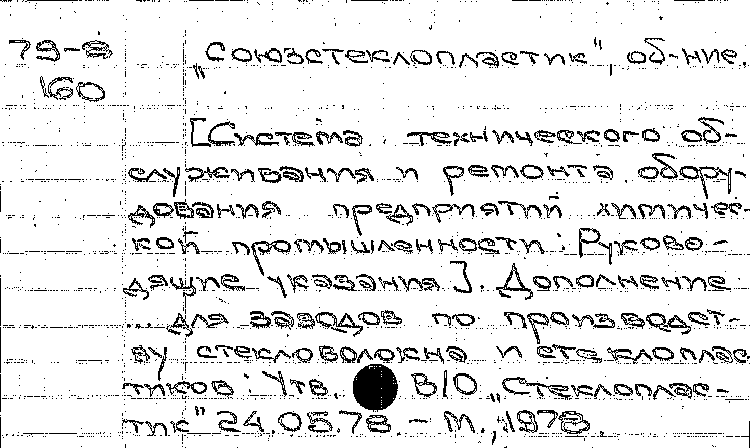 79-8 „Союзстеклопластик", об-ние.
160
[Система технического об-
служивания и ремонта обору-
дования предприятий химичес-
кой промышленности: Руково-
дящие указания]. Дополнение
... для заводов по производст-
ву стекловолокна и стеклоплас
тиков: Утв. В/О „Стеклоплас-
тик" 24.05.78. - М., 1978.